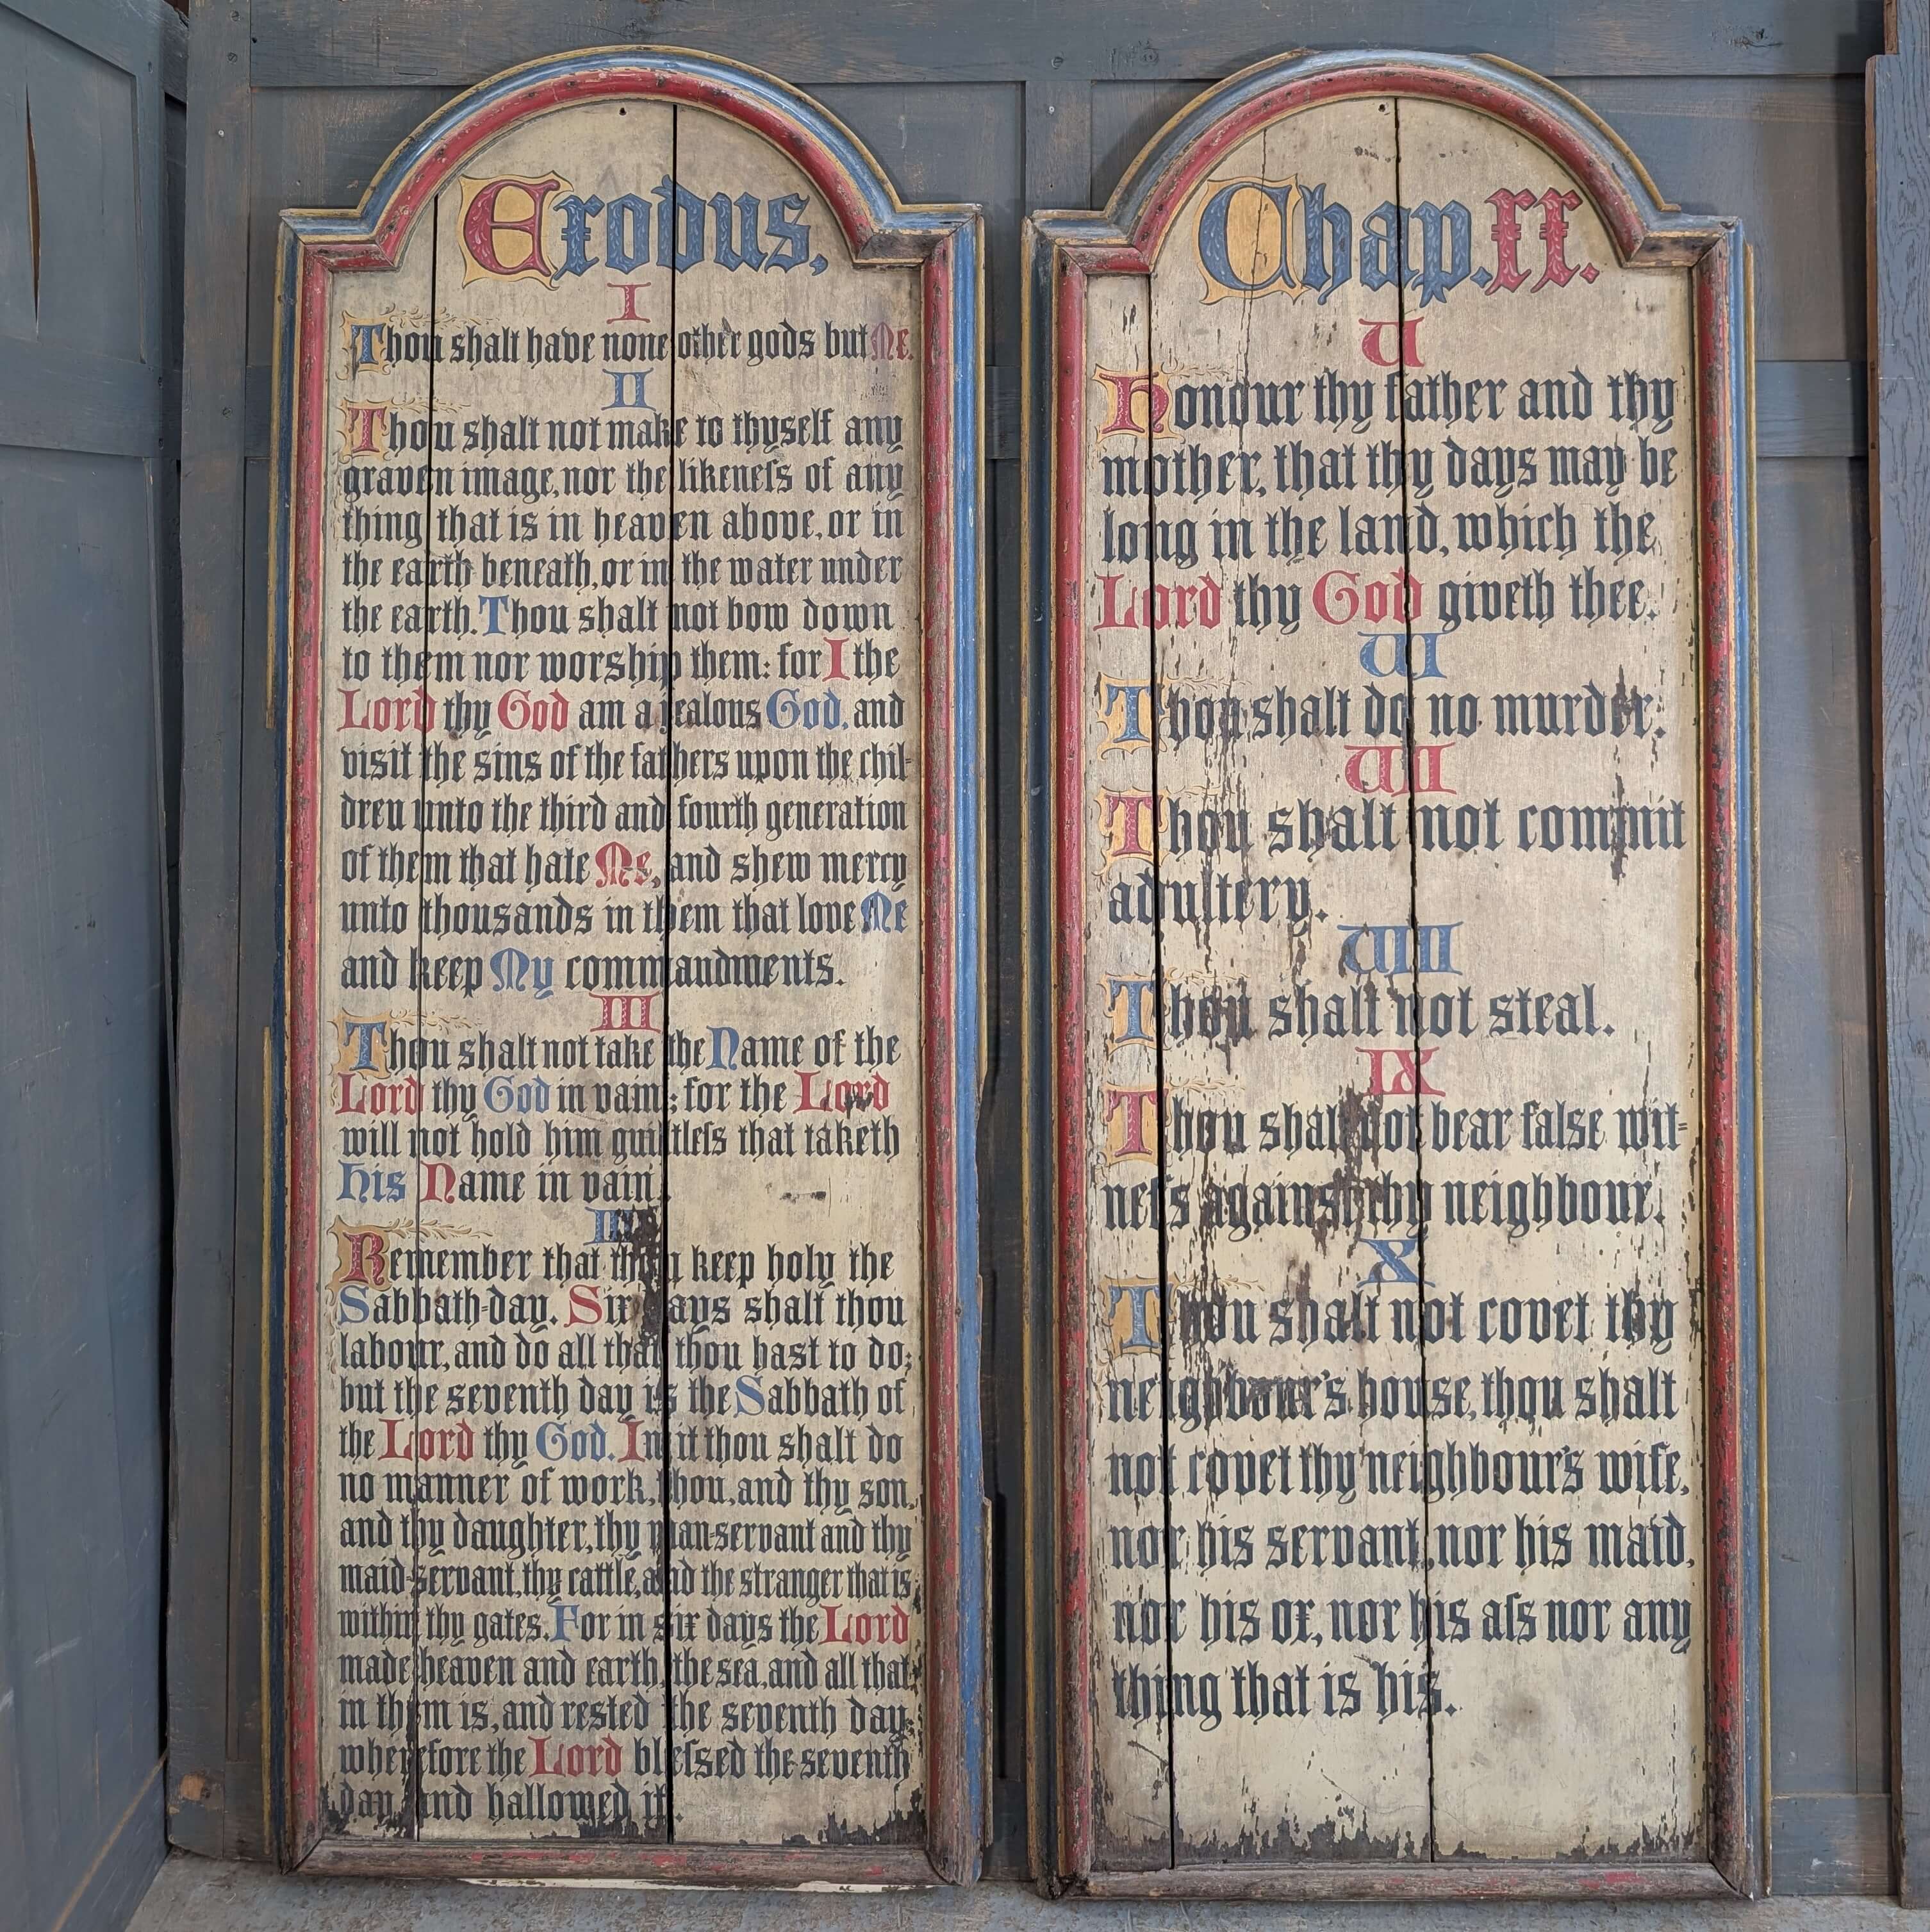 Exodus,
I
Thou shalt have none other gods but Me.
II
Thou shalt not make to thyself any
graven image, nor the likeneſs of any
thing that is in heaven above, or in
the earth beneath, or in the water under
the earth. Thou shalt not bow down
to them nor worship them: for I the
Lord thy God am a jealous God, and
visit the sins of the fathers upon the chil-
dren unto the third and fourth generation
of them that hate Me, and shew mercy
unto thousands in them that love Me
and keep My commandments.
III
Thou shalt not take the Name of the
Lord thy God in vain; for the Lord
will not hold him guiltleſs that taketh
his Name in vain.
Remember that thou keep holy the
Sabbath-day. Six days shalt thou
labour, and do all that thou hast to do;
but the seventh day is the Sabbath of
the Lord thy God. In it thou shalt do
no manner of work, thou, and thy son,
and thy daughter, thy man-servant and thy
maid-servant, thy cattle, and the stranger that is
within thy gates. For in six days the Lord
made heaven and earth, the sea, and all that
in them is, and rested the seventh day;
wherefore the Lord bleſsed the seventh
day and hallowed it.
Chap. XX.
V
Honour thy father and thy
mother, that thy days may be
long in the land, which the
Lord thy God giveth thee.
VI
Thou shalt do no murder.
VII
Thou shalt not commit
adultery.
VIII
Thou shalt not steal.
IX
Thou shalt not bear false wit-
neſs against thy neighbour.
X
Thou shalt not covet thy
neighbour's house, thou shalt
not covet thy neighbour's wife,
nor his servant, nor his maid,
nor his ox, nor his aſs nor any
thing that is his.